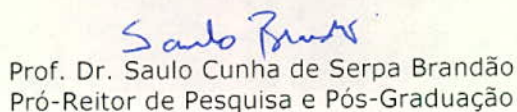 Saulo Brandão
Prof. Dr. Saulo Cunha de Serpa Brandão
Pró-Reitor de Pesquisa e Pós-Graduação